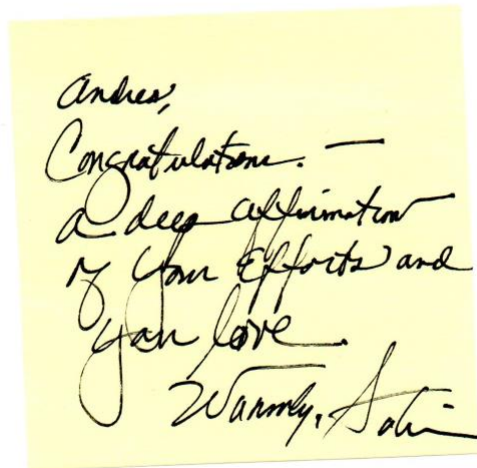 Andrea,
Congratulations. —
a deep affirmation
of your Efforts and
your love.
Warmly,